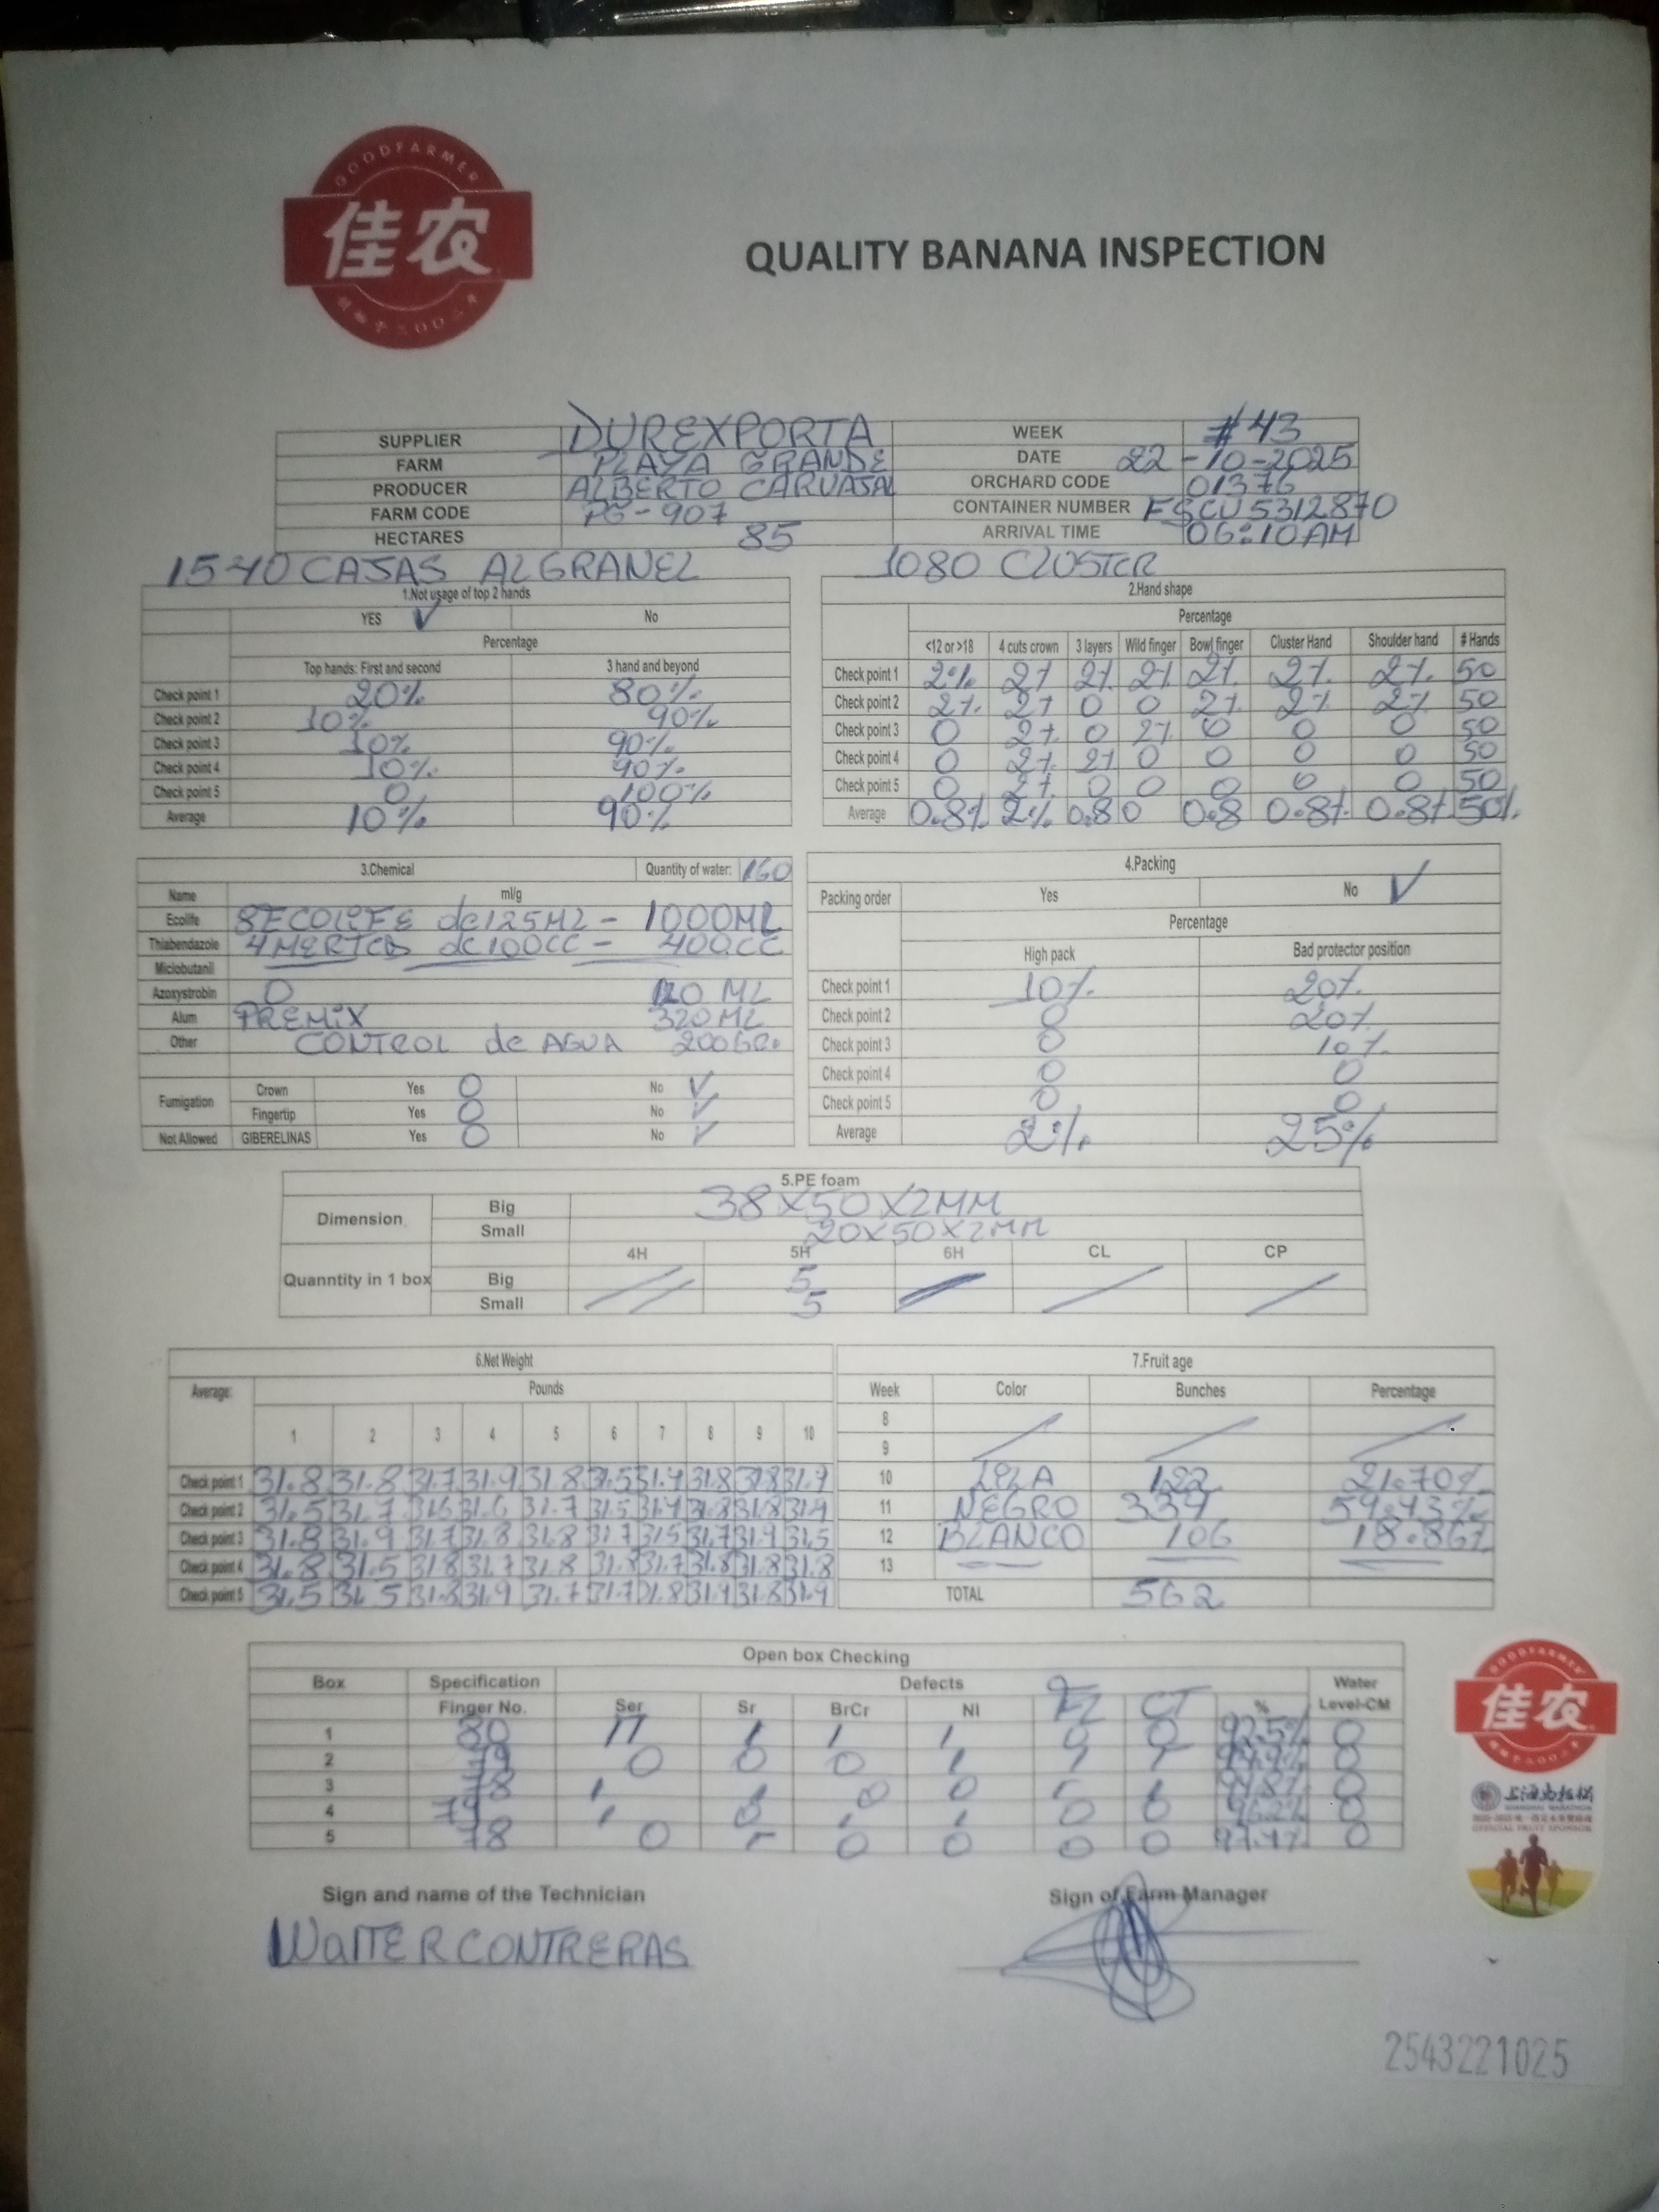 GOODFARMER
佳农
QUALITY BANANA INSPECTION
SUPPLIER DUREXPORTA WEEK #43
FARM PLAYA GRANDE DATE 22-10-2025
PRODUCER ALBERTO CARVAJAL ORCHARD CODE 01376
FARM CODE PG-907 CONTAINER NUMBER FSCU5312870
HECTARES 85 ARRIVAL TIME 06:10AM
1540 CAJAS ALGRANEL 1080 CLUSTER
1.Not usage of top 2 hands
YES ✓ No
Percentage
Top hands: First and second 3 hand and beyond
Check point 1 20% 80%
Check point 2 10% 90%
Check point 3 10% 90%
Check point 4 10% 90%
Check point 5 0 100%
Average 10% 90%
2.Hand shape
Percentage
<12 or >18 4 cuts crown 3 layers Wild finger Bowl finger Cluster Hand Shoulder hand # Hands
Check point 1 2% 2% 2% 2% 2% 2% 2% 50
Check point 2 2% 2% 0 0 2% 2% 2% 50
Check point 3 0 2% 0 2% 0 0 0 50
Check point 4 0 2% 2% 0 0 0 0 50
Check point 5 0 2% 0 0 0 0 0 50
Average 0.8% 2% 0.8 0 0.8 0.8% 0.8% 50%
3.Chemical Quantity of water: 160
Name ml/g
Ecolife 8ECOLIFE de125ML - 1000ML
Thiabendazole 4MERTCB de100CC - 400CC
Miclobutanil
Azoxystrobin 0 120 ML
Alum PREMIX 320ML
Other CONTROL de AGUA 200GR.
Fumigation Crown Yes 0 No ✓
Fingertip Yes 0 No ✓
Not Allowed GIBERELINAS Yes 0 No ✓
4.Packing
Packing order Yes No ✓
Percentage
High pack Bad protector position
Check point 1 10% 20%
Check point 2 0 20%
Check point 3 0 10%
Check point 4 0 0
Check point 5 0 0
Average 2% 25%
5.PE foam
Dimension Big 38X50X2MM
Small 20X50X2MM
4H 5H 6H CL CP
Quanntity in 1 box Big 5
Small 5
6.Net Weight
Average: Pounds
1 2 3 4 5 6 7 8 9 10
Check point 1 31.8 31.8 31.7 31.9 31.8 31.5 31.4 31.8 31.8 31.9
Check point 2 31.5 31.7 31.6 31.6 31.7 31.5 31.4 31.8 31.8 31.9
Check point 3 31.8 31.9 31.7 31.8 31.8 31.7 31.5 31.7 31.9 31.5
Check point 4 31.8 31.5 31.8 31.7 31.8 31.8 31.7 31.8 31.8 31.8
Check point 5 31.5 31.5 31.8 31.9 31.7 31.7 31.8 31.9 31.8 31.9
7.Fruit age
Week Color Bunches Percentage
8
9
10 LILA 122 21.70%
11 NEGRO 334 59.43%
12 BLANCO 106 18.86%
13
TOTAL 562
Open box Checking
Box Specification Defects Water
Finger No. Ser Sr BrCr NI CT % Level-CM
1 80 11 1 1 1 0 0 92.5% 0
2 79 0 0 0 1 0
3 78 1 1 0 0 0
4 79 1 0 1 1 0 0 96.2% 0
5 78 0 0 0 0 0 0
Sign and name of the Technician Sign of Farm Manager
WalTER CONTRERAS
GOODFARMER
佳农
SHANGHAI MARATHON
OFFICIAL FRUIT SPONSOR
2543221025